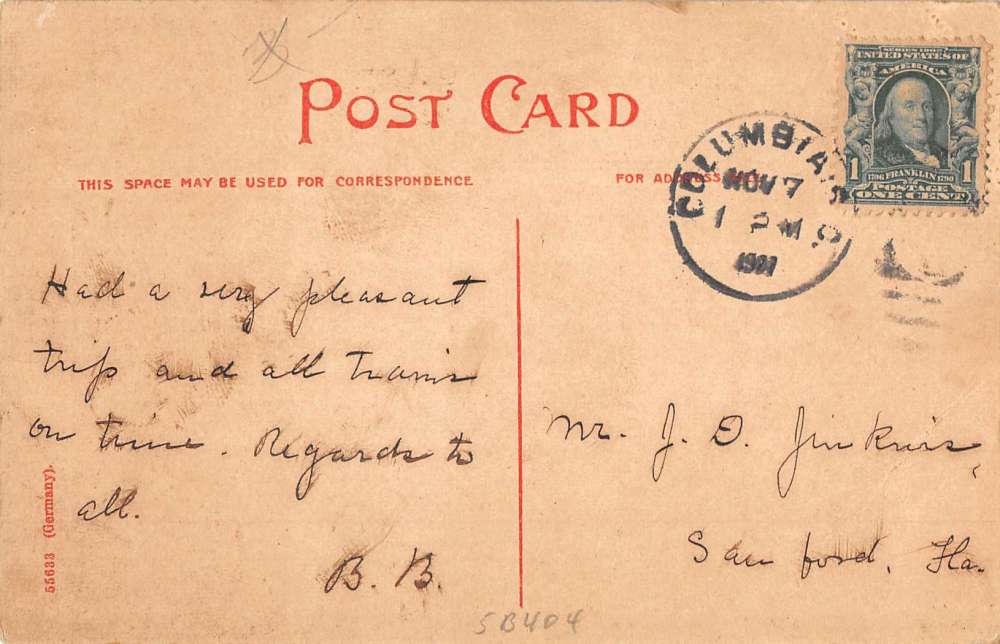 POST CARD
THIS SPACE MAY BE USED FOR CORRESPONDENCE
FOR ADDRESS ONLY
SERIES 1902
UNITED STATES OF
AMERICA
1 1706 FRANKLIN 1790 1
POSTAGE
ONE CENT
COLUMBIA
NOV 7
1 PM
1907
Had a very pleasant
trip and all trains
on time. Regards to
all.
B. B.
Mr. J. D. Jinkins,
Sanford, Fla.
55633 (Germany).
5B404